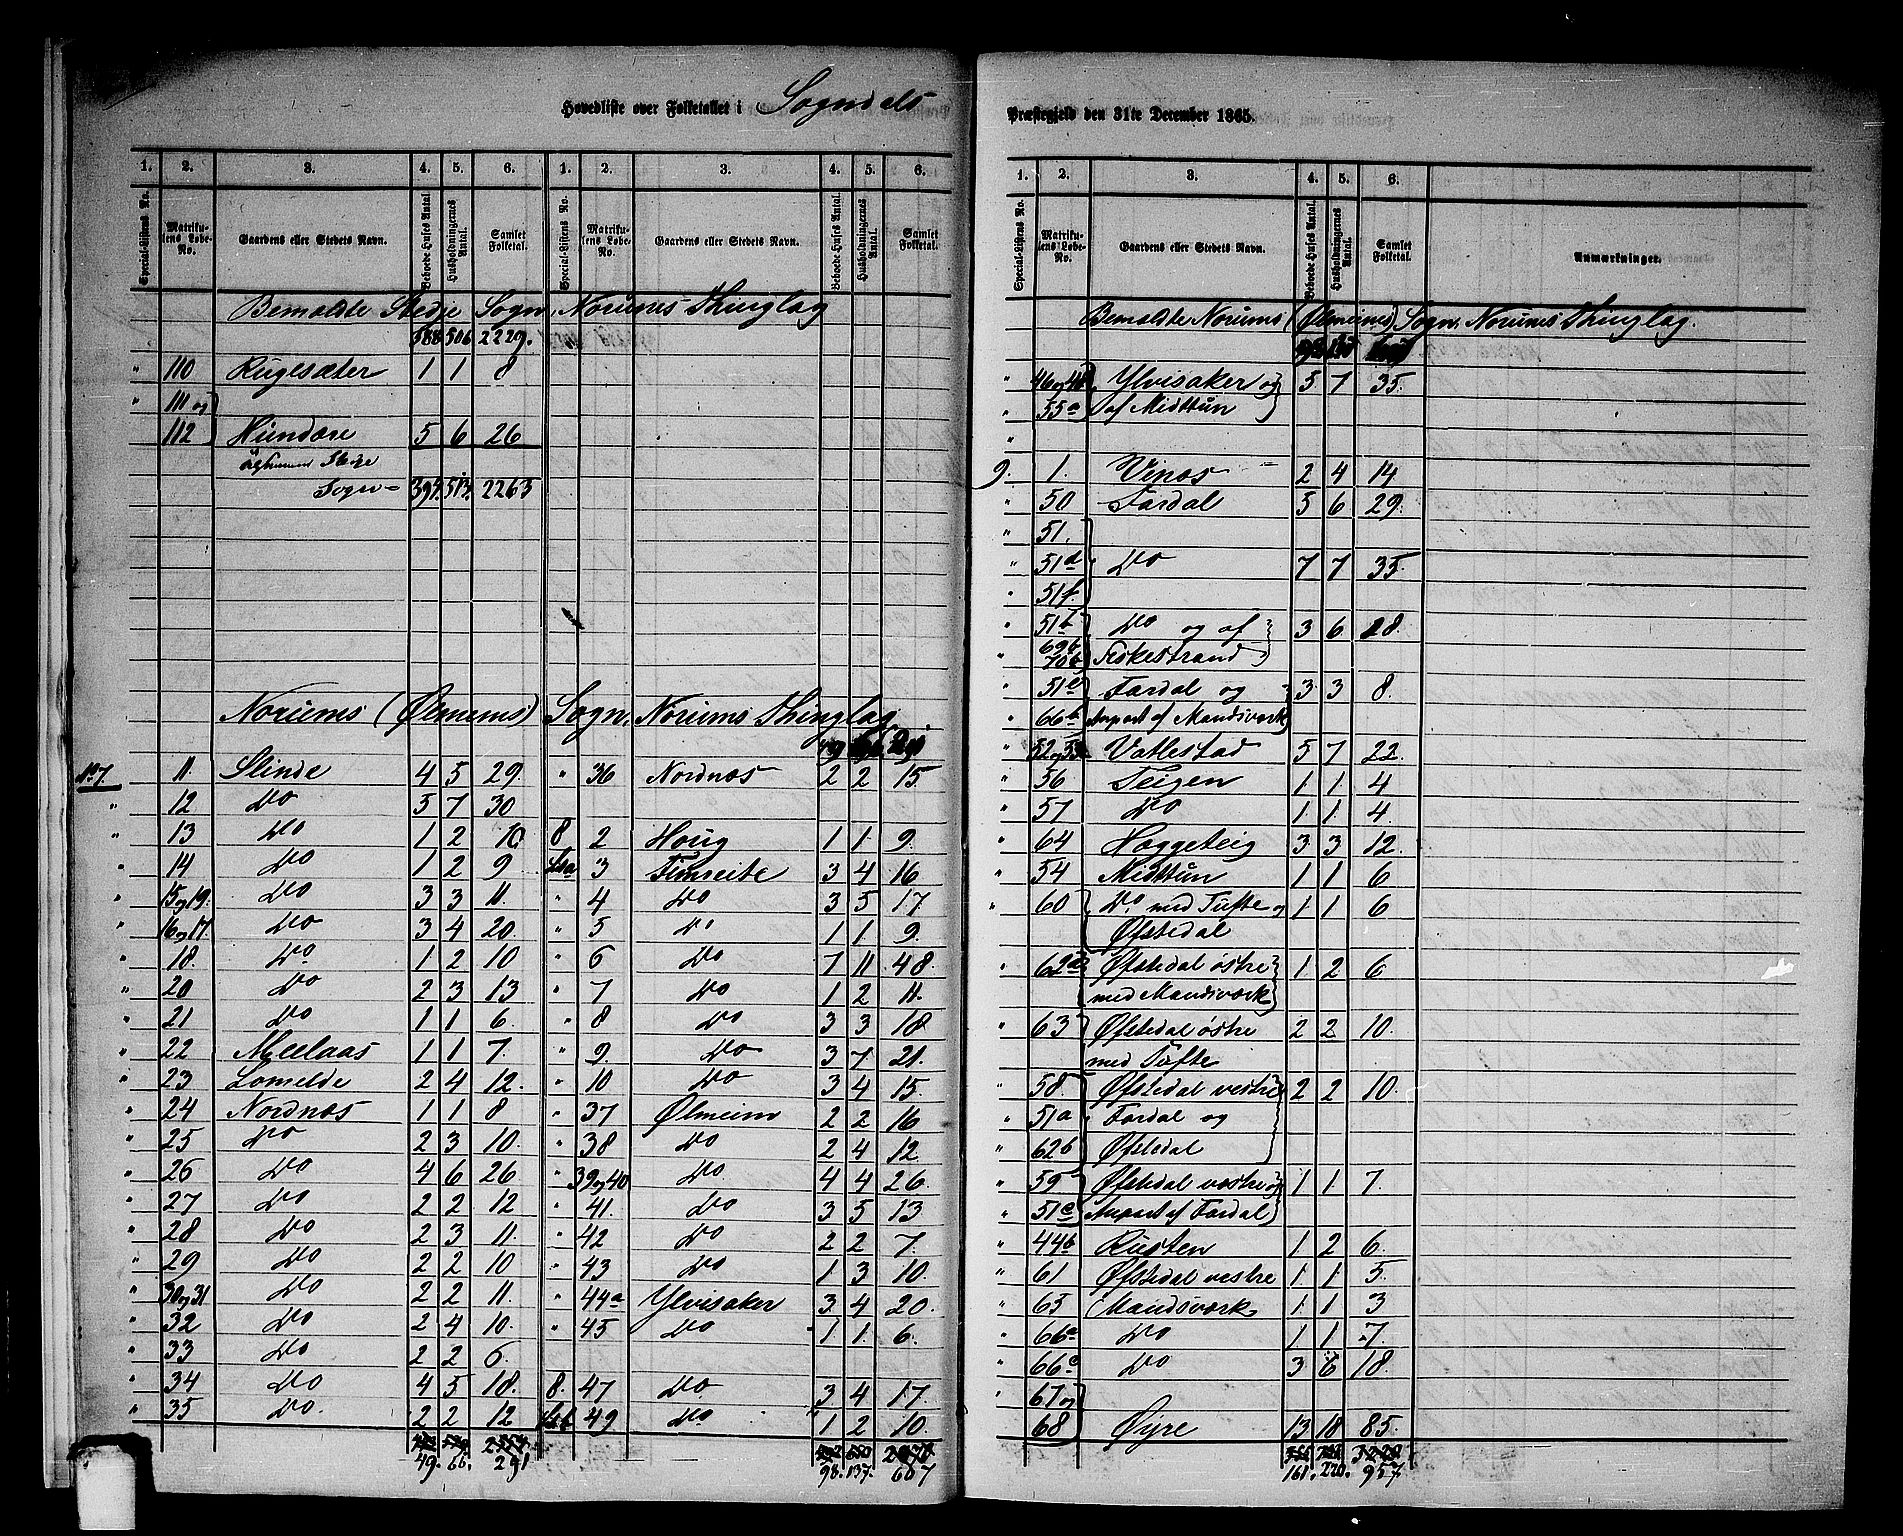 Hovedliste over Folketallet i Sogndals
1. 2. 3. 4. 5. 6. 1. 2. 3. 4. 5. 6.
Special-Listens No. Matrikulens Løbe-No. Gaardens eller Stedets Navn. Beboede Huses Antal. Husholdningernes Antal. Samlet Folketal. Special-Listens No. Matrikulens Løbe-No. Gaardens eller Stedets Navn. Beboede Huses Antal. Husholdningernes Antal. Samlet Folketal.
Bemældte Stedje Sogn, Norums Thinglag
388 506 2229.
" 110 Rugesæter 1 1 8
" 111 og
" 112 Hundere 5 6 26
Sogn = 394. 513. 2263
Norums (Ølmems) Sogn. Norums Thinglag.
No 7 11. Slinde 4 5 29.
" 12 Do 5 7 30
" 13 Do 1 2 10
" 14 Do 1 2 9
" 15 og 19. Do 3 3 11.
" 16 og 17. Do 3 4 20.
" 18 Do 1 2 10
" 20 Do 2 3 13
" 21 Do 1 1 6
" 22 Meelaas 1 1 7.
" 23 Lomelde 2 4 12.
" 24 Nordnæs 1 1 8
" 25 Do 2 3 10.
" 26 Do 4 6 26
" 27 Do 2 2 12
" 28 Do 2 3 11.
" 29 Do 2 2 10
" 30 og 31 Do 2 2 11.
" 32 Do 2 4 10.
" 33 Do 2 2 6.
" 34 Do 4 5 18.
" 35 Do 2 2 12
49. 66. 291
" 36 Nordnæs 2 2 15.
8 2 Houg 1 1 9.
Lit a 3 Fimreite 3 4 16
" 4 Do 3 5 17.
" 5 Do 1 1 9.
" 6 Do 7 11 48.
" 7 Do 1 2 11.
" 8 Do 3 3 18
" 9. Do 3 7 21.
" 10 Do 3 4 15.
" 37 Ølmeim 2 2 16
" 38 Do 2 4 12.
" 39 og 40 Do 4 4 26
" 41. Do 3 5 13
" 42 Do 2 2 7.
" 43 Do 1 3 10.
" 44a Ylvisaker 3 4 20.
" 45 Do 1 1 6.
8. 47 Do 3 4 17.
Lit b 49 Do 1 2 10.
98. 137. 607
Præstegjeld den 31te December 1865.
1. 2. 3. 4. 5. 6.
Special-Listens No. Matrikulens Løbe-No. Gaardens eller Stedets Navn. Beboede Huses Antal. Husholdningernes Antal. Samlet Folketal. Anmærkninger.
Bemældte Norums (Ølmeims) Sogn, Norums Thinglag.
" 46 og 48 Ylvisaker og 5 7 35.
" 55a af Midttun
9. 1. Vinæs 2 4 14
" 50 Fardal 5 6 29.
" 51.
" 51d Do 7 7 35.
" 51f.
" 51b Do og af 3 6 18.
" 69b 70b Fiskestrand
" 51e Fardal og 3 3 8.
" 66b Anpart af Mandsværk
" 52 og 53 Vatlestad 5 7 22.
" 56 Teigen 1 1 4
" 57 Do 1 1 4.
" 64 Haggeteig 3 3 12.
" 54 Midttun 1 1 6
" 60 Do med Tufte og 1 1 6
Øfstedal
" 62a Øfstedal østre 1 2 6
med Mandsværk
" 63 Øfstedal østre 2 2 10.
med Tufte
" 58 Øfstedal vestre 2 2 10.
" 51a Fardal og
" 62b Øfstedal
" 59 Øfstedal vestre og 1 1 7.
" 51c Anpart af Fardal
" 44b Rusten 1 2 6.
" 61 Øfstedal vestre 1 1 5.
" 65 Mandsværk 1 1 3
" 66a Do 1 1 7.
" 66c Do 3 6 18.
" 67 og
" 68 Øyre 13 18 85.
161. 220. 957